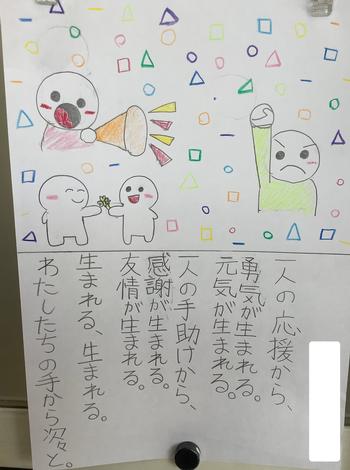 一人の応援から、
勇気が生まれる。
元気が生まれる。
一人の手助けから、
感謝が生まれる。
友情が生まれる。
生まれる、生まれる。
わたしたちの手から次々と。